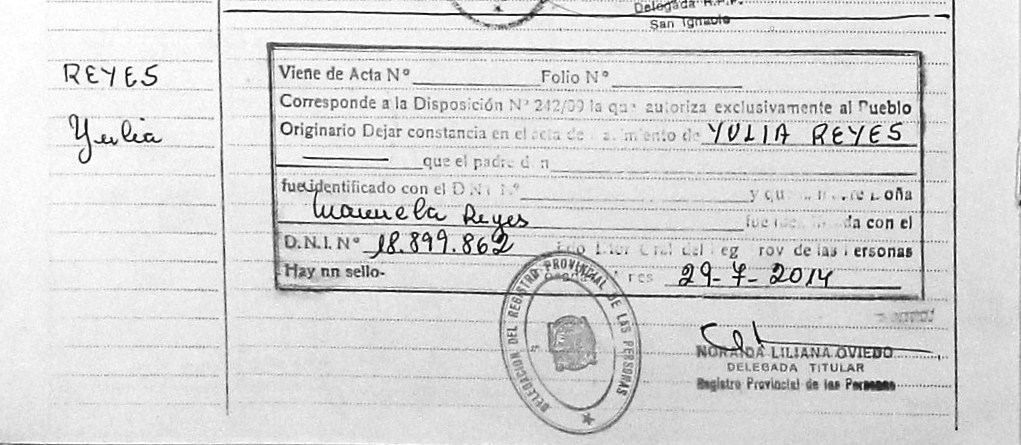 Delegada R.P.P.
San Ignacio
REYES
Yulia
Viene de Acta Nº Folio Nº
Corresponde a la Disposición Nº 242/09 la que autoriza exclusivamente al Pueblo
Originario Dejar constancia en el acta de YULIA REYES
que el padre
fue identificado con el D.N.I. Nº y que Doña
Manuela Reyes con el
D.N.I. Nº 18.899.862 del de las Personas
Hay nn sello- 29-7-2014
DELEGACION DEL REGISTRO PROVINCIAL DE LAS PERSONAS
NORAIDA LILIANA OVIEDO
DELEGADA TITULAR
Registro Provincial de las Personas